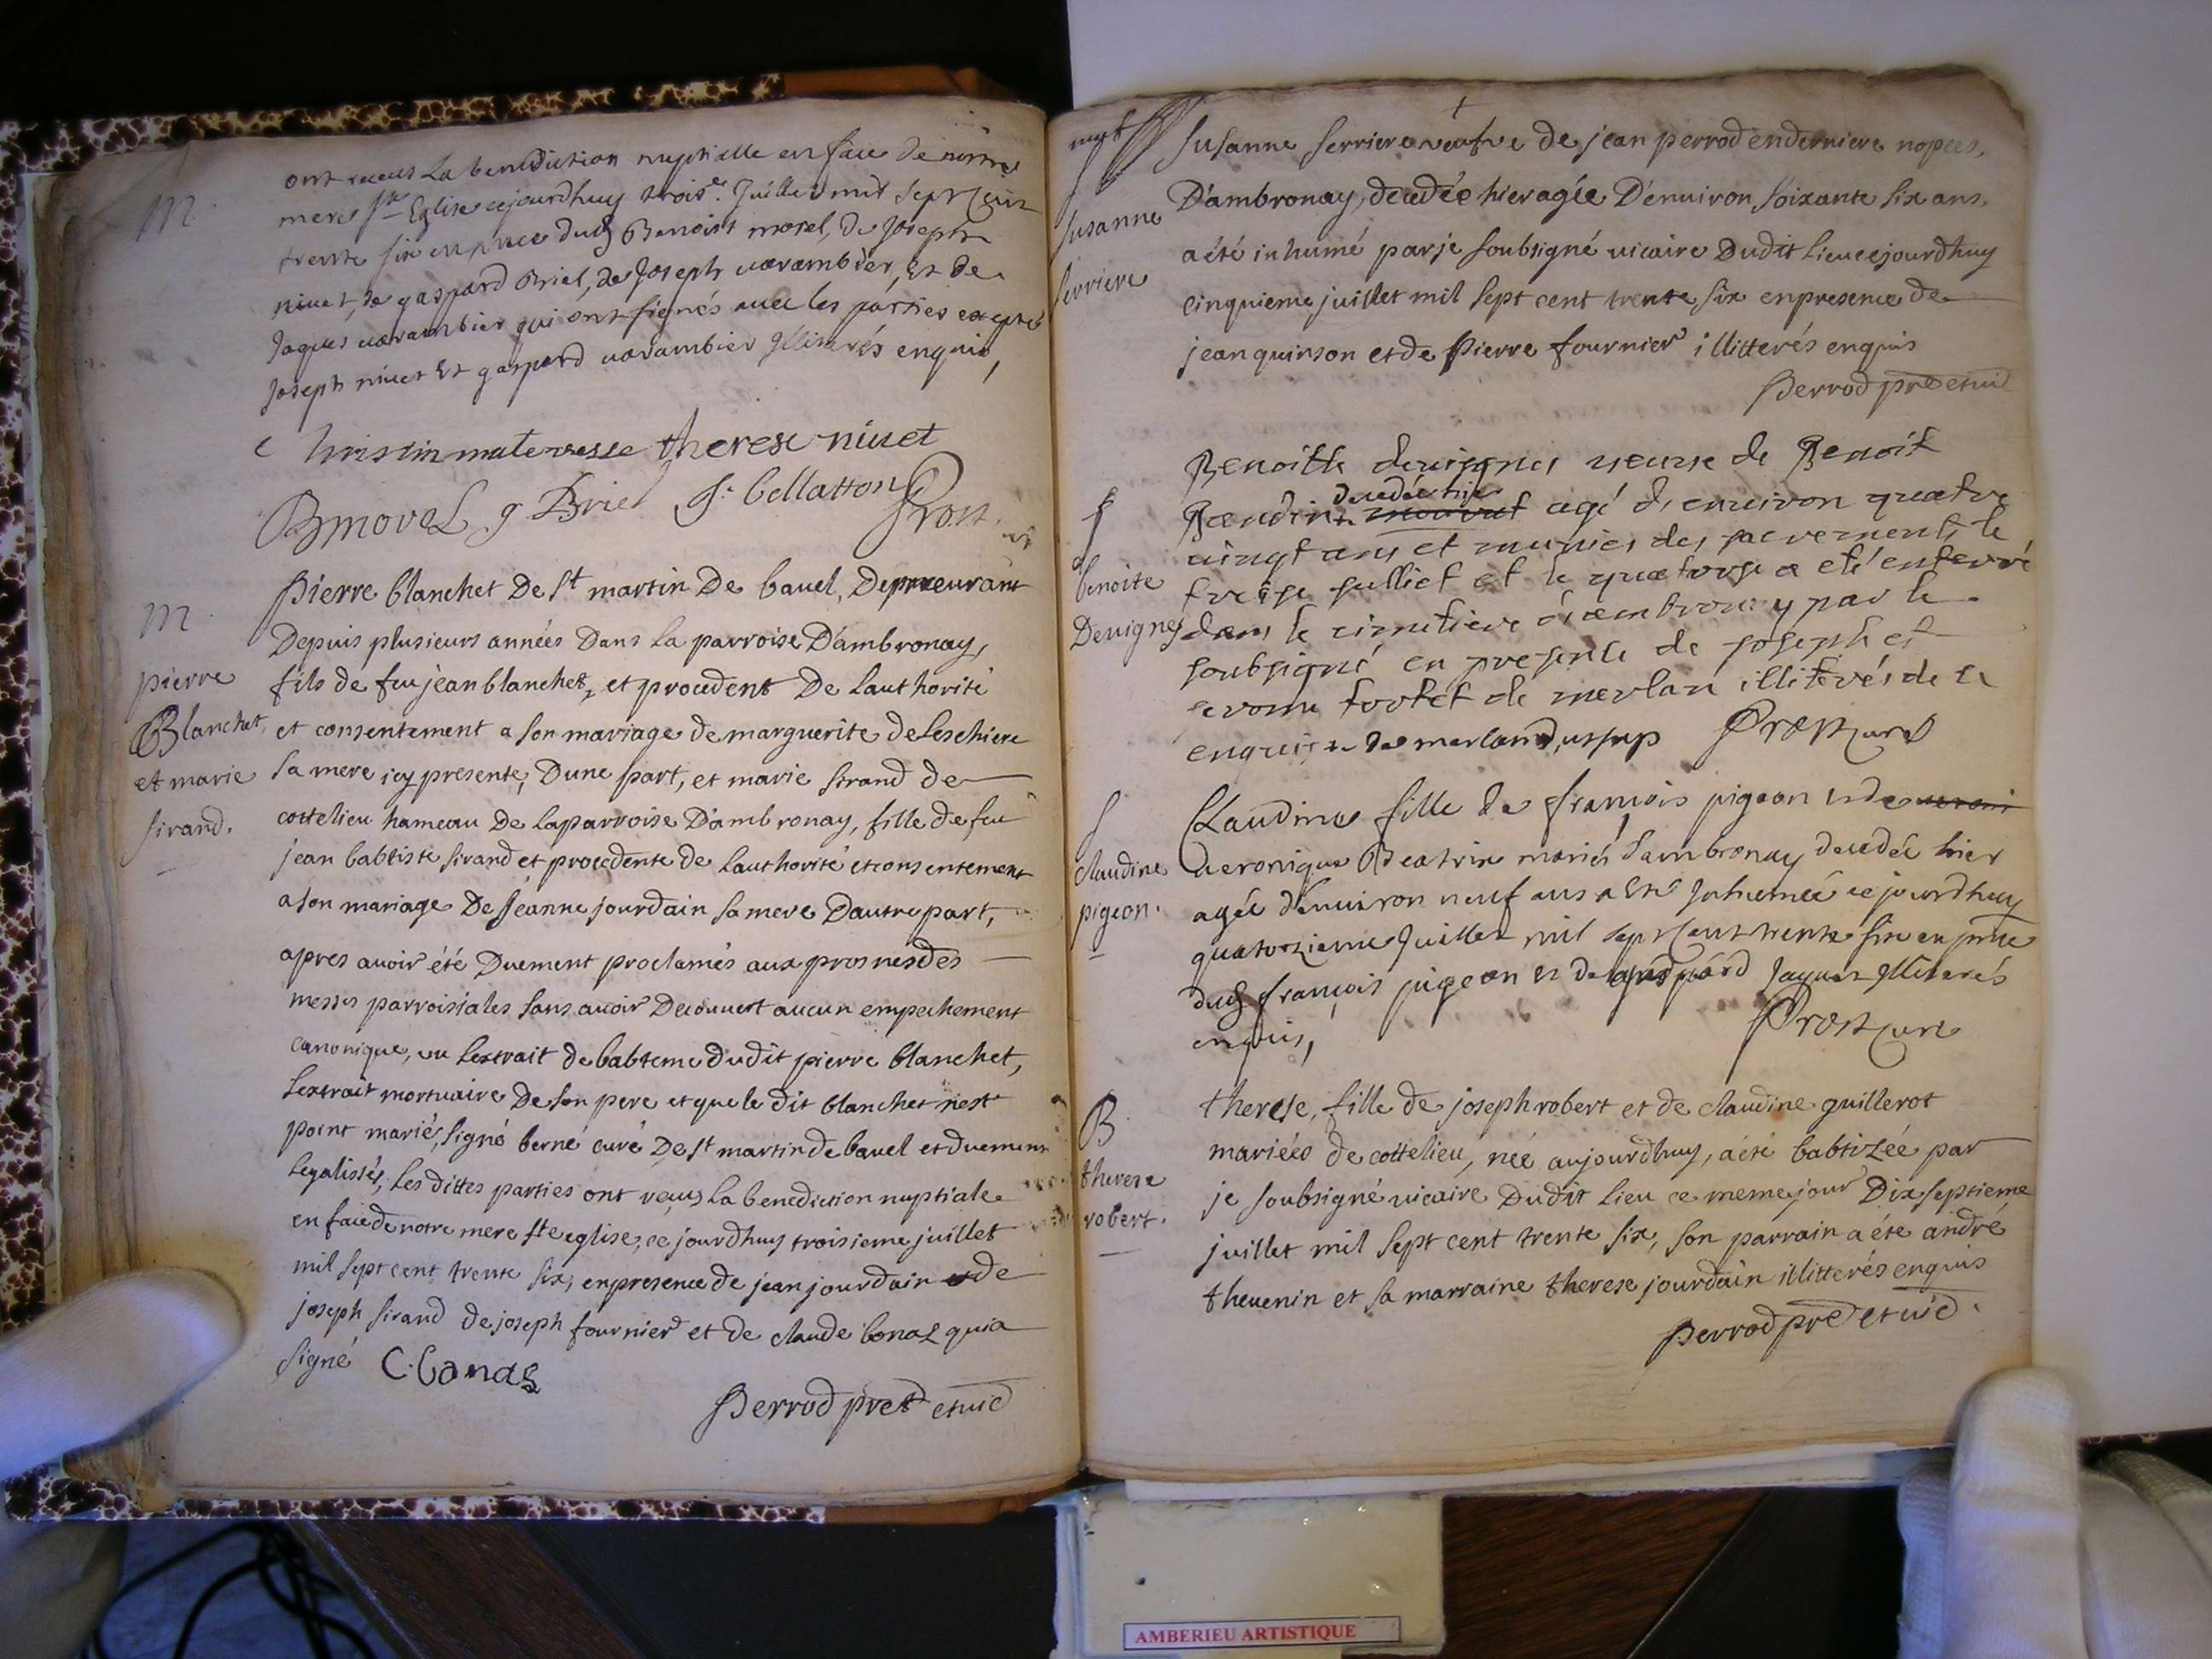 M.
ont receus La benediction nuptialle en face de nostre
mere Ste Eglise cejourdhuy trois.e Juillet mil Sept Cent
trente six en pnce dud Benoist morel, de Joseph
niuet, de gaspard Briel, de Joseph uarambier, Et de
Jaques uarambier qui ont signés auec les parties excepté
Joseph niuet Et gaspard uarambier Illiterés enquis,
therese niuet
B morel g Briel J. Collatton Prost
M.
pierre
Blanchet
et marie
sirand.
Pierre blanchet De St martin De bauel, Demeurant
Depuis plusieurs années Dans la parroise D'ambronay,
fils de feu jean blanchet, et procedent De Lauthorité
et consentement a son mariage de marguerite de Leschiere
sa mere icy presente, Dune part, et marie sirand de
cottelieu hameau De la parroise D'ambronay, fille de feu
jean babtiste sirand et procedente de Lauthorité et consentement
a son mariage De Jeanne jourdain sa mere Dautre part,
apres auoir été Duement proclamés aux prosnes des
messes parroisiales sans auoir Decouuert aucun empechement
canonique, uu Lextrait de babteme dudit pierre blanchet,
Lextrait mortuaire De son pere et que le dit blanchet nest
point marié, signé berné curé De St martin de bauel et duement
legalissés, les dittes parties ont reçus la benediction nuptiale
en face de notre mere ste eglise, ce jourdhuy troisieme juillet
mil sept cent trente six, en presence de jean jourdain de
joseph sirand de joseph fournier et de claude bonaz qui a
signé C. bonaz
Perrod pret et uic
Susanne
serriere
Susanne serriere veufve de jean perrod en derniere nopces,
D'ambronay, decedée hier agée D'enuiron soixante six ans,
a été inhumé par je soubsigné uicaire Dudit Lieu cejourdhuy
cinquieme juillet mil sept cent trente six en presence de
jean quinson et de Pierre fournier illitterés enquis
Perrod pre et uic
benoite
Deuignes
Benoitte deuignes ueuse de Benoit
decedée hier
agé d'enuiron quatre
uingt ans et munies des sacrements le
treise julliet et le quatorse a eté enterré
dans le cimetiere d'ambronay par le
soubsigné en presence de joseph et
tortet de merlan illiterés de ce
enquis de merland, Prost curé
claudine
pigeon.
Claudine fille de françois pigeon et de
ueronique Beatrix mariés d'ambronay decedée hier
agée d'enuiron neuf ans a Eté Inhumée ce jourdhuy
quatorzieme Juillet mil sept Cent trente six en pnce
dud françois pigeon et de gaspard Jaques Illiterés
enquis,
Prost curé
B.
therese
robert.
therese, fille de joseph robert et de claudine guillerot
mariées de cottelieu, née aujourdhuy, a été babtizée par
je soubsigné uicaire Dudit Lieu ce meme jour Dix septieme
juillet mil sept cent trente six, son parrain a été andré
theuenin et sa marraine therese jourdain illitterés enquis
perrod pre et uic.
AMBERIEU ARTISTIQUE